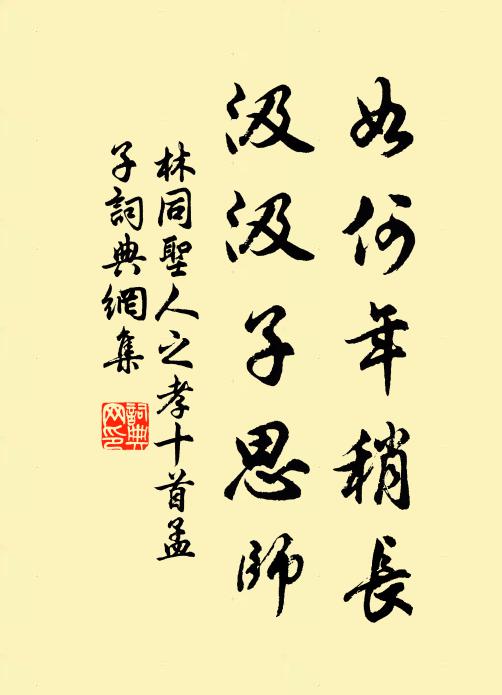 如何年稍長
汲汲子思師
林同聖人之孝十首孟
子詞典網集
詞典
网印